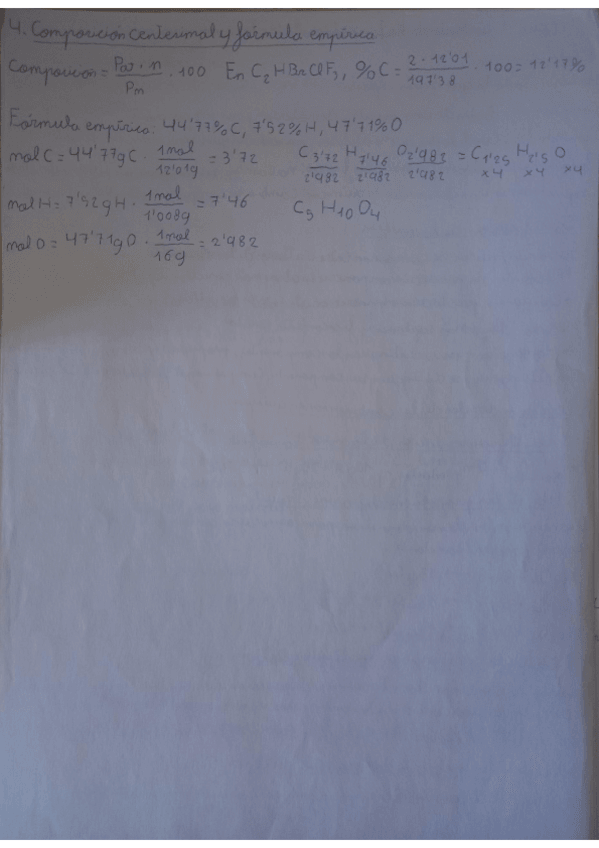 4. Composición centesimal y fórmula empírica
Composición = Pat · n / Pm · 100 En C2HBrClF3, %C = 2 · 12'01 / 197'38 · 100 = 12'17%
Fórmula empírica: 44'77%C, 7'52%H, 47'71%O
mol C = 44'77gC · 1mol / 12'01g = 3'72 C 3'72/2'982 H 7'46/2'982 O 2'982/2'982 = C1'25 H2'5 O
x4 x4 x4
mol H = 7'52gH · 1mol / 1'008g = 7'46 C5H10O4
mol O = 47'71gO · 1mol / 16g = 2'982